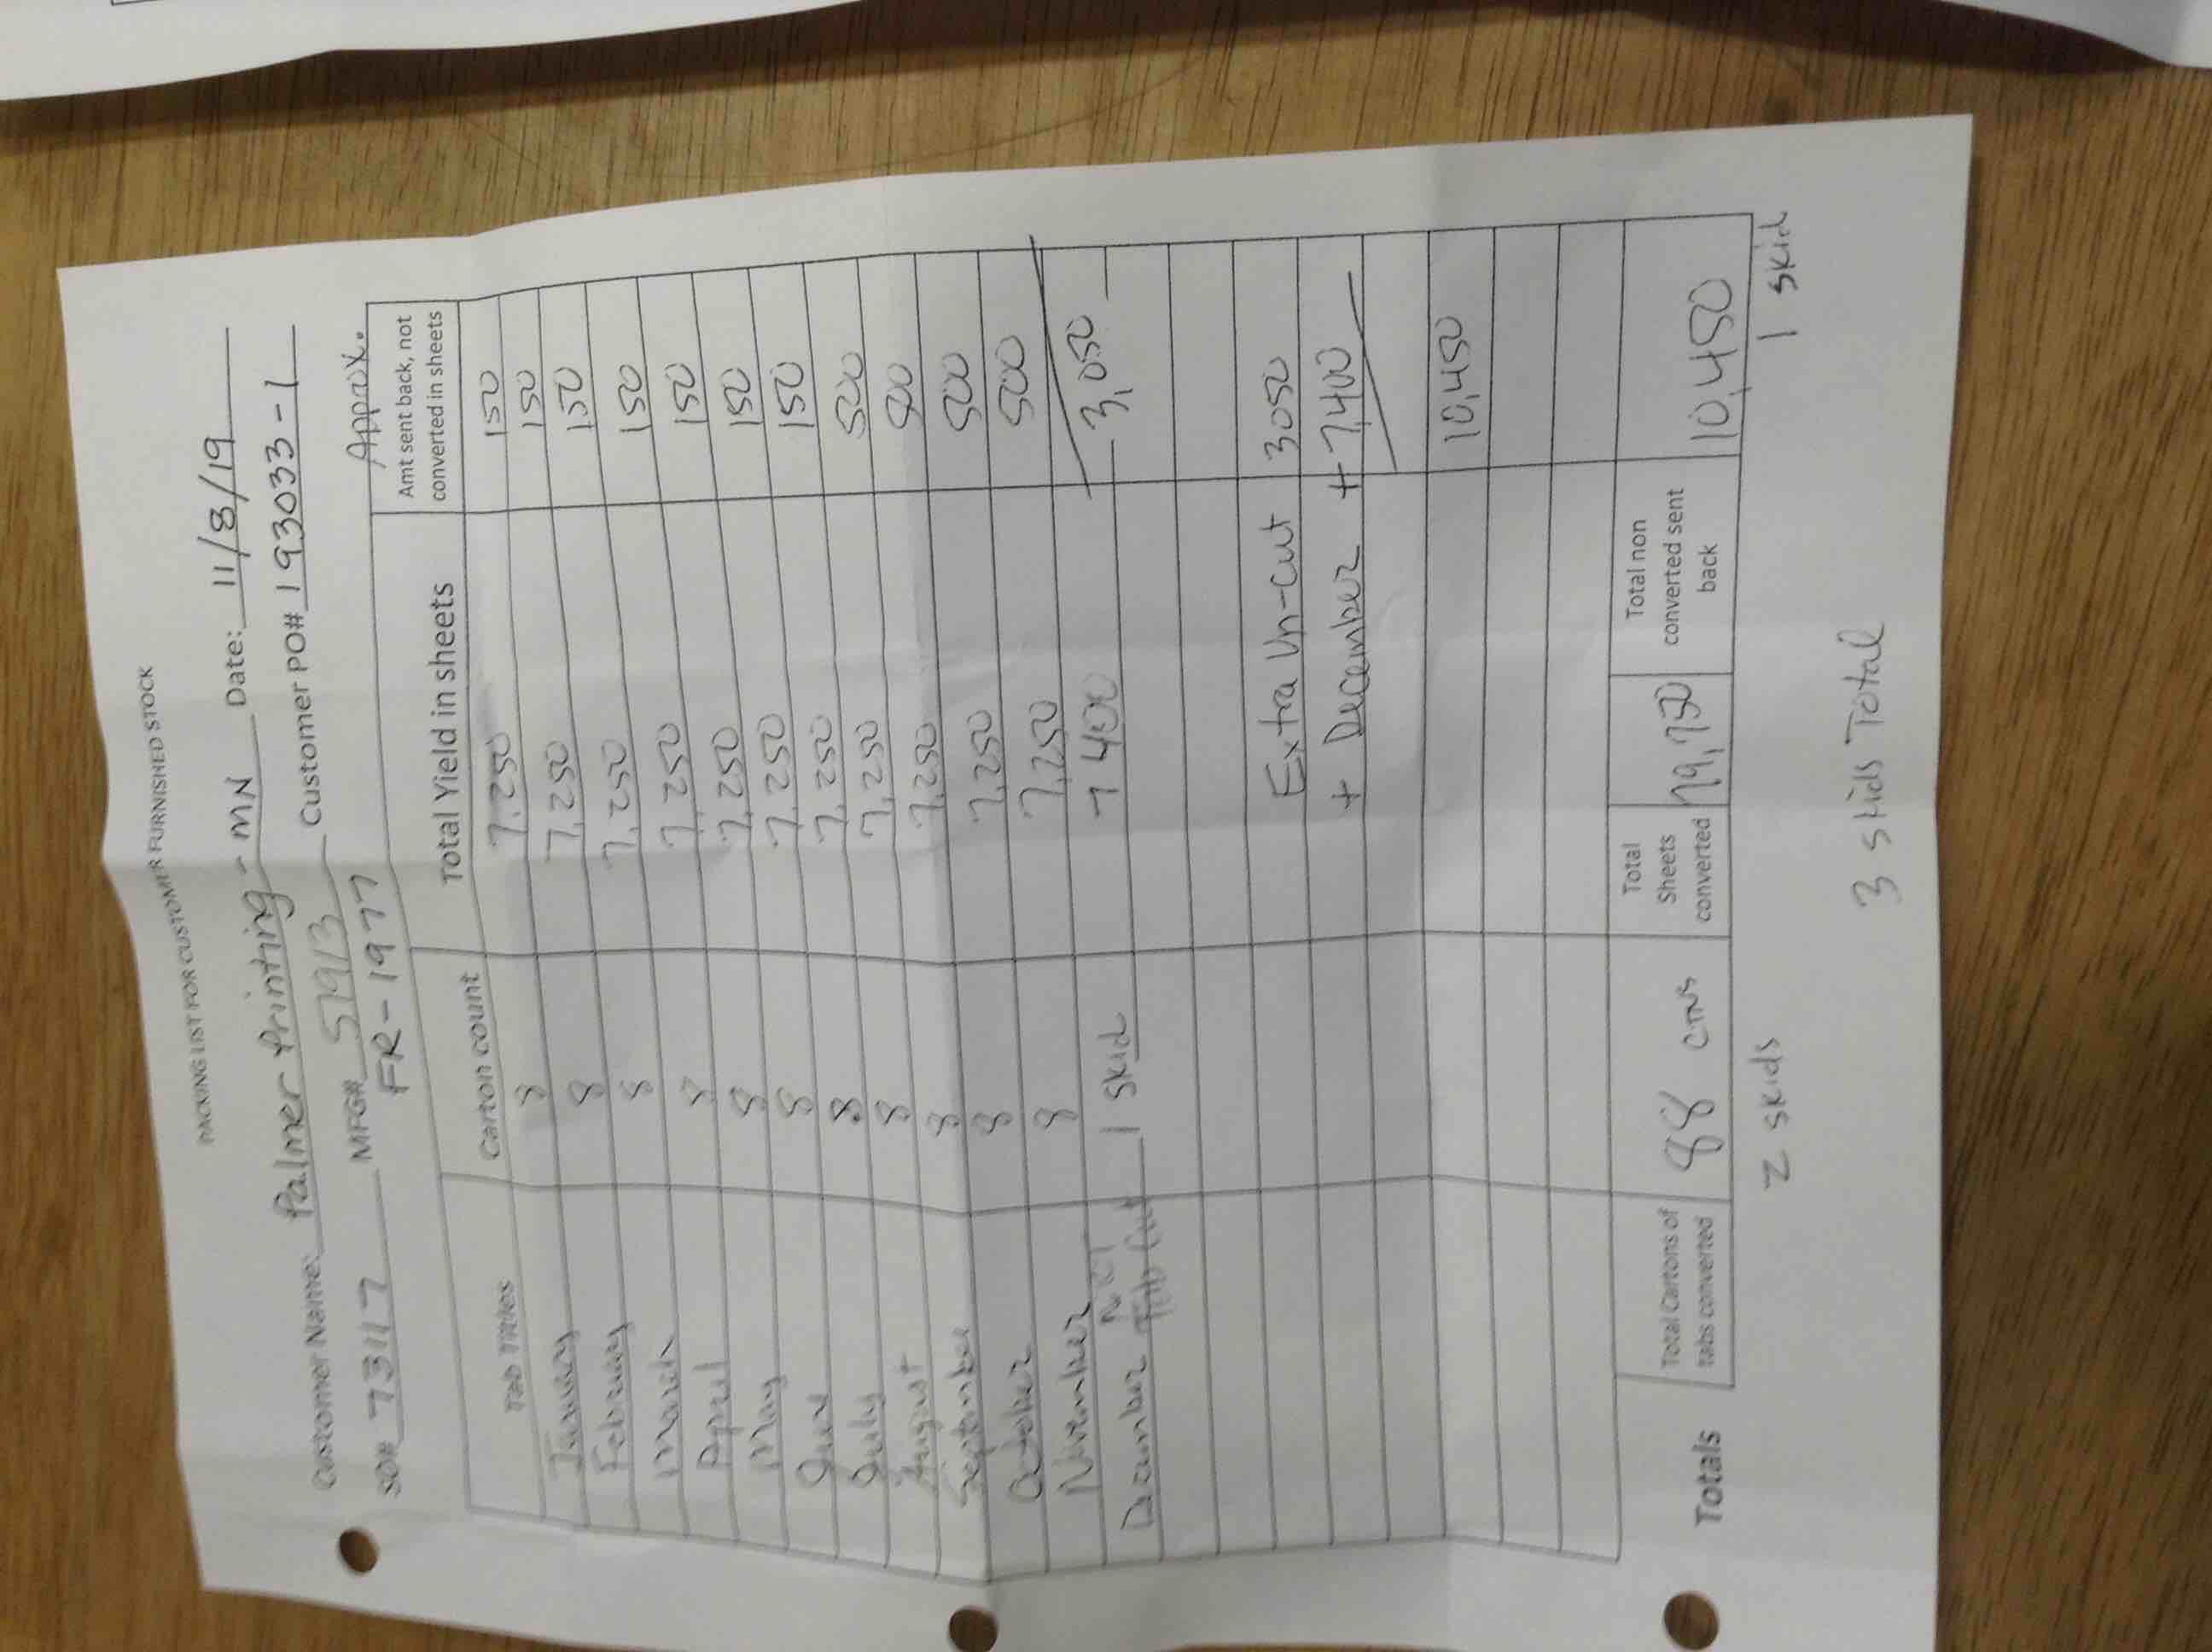 PACKING LIST FOR CUSTOMER FURNISHED STOCK
Customer Name: Palmer Printing - MN Date: 11/8/19
SO# 73117 MFG# 51913 Customer PO# 193033-1
FR-1977
Approx.
Tab Titles Carton count Total Yield in sheets Amt sent back, not converted in sheets
January 8 7,250 150
February 8 7,250 150
March 8 7,250 150
April 8 7,250 150
May 8 7,250 150
June 8 7,250 150
July 8 7,250 150
August 8 7,250 500
September 8 7,250 500
October 8 7,250 500
November 8 7,250 500
December NOT Tab Cut 1 skid 7400 3,050
Extra Un-cut 3050
+ December + 7,400
10,450
Totals Total Cartons of tabs converted 88 CTNS Total Sheets converted 79,750 Total non converted sent back 10,450
2 skids 1 skid
3 skids Total